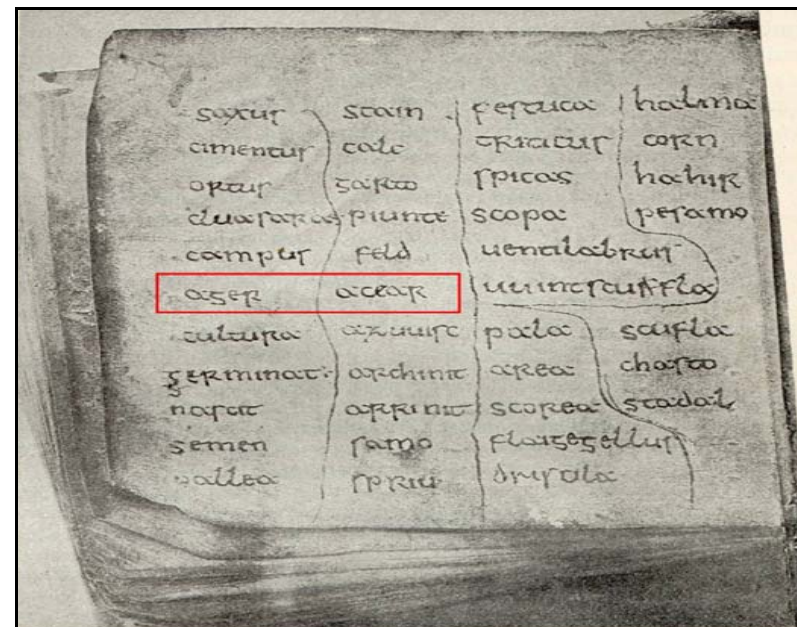 saxus stain festuca halma
cimentus calc triticus corn
ortus garto spicas hahir
piunte scopa pesamo
campus feld uentilabrus
ager accar uuintscufla
cultura azuuisc pala scufla
germinat archinit area
nascit arrinit scorea stadal
semen samo flaigegellus
pallea spriu driscila